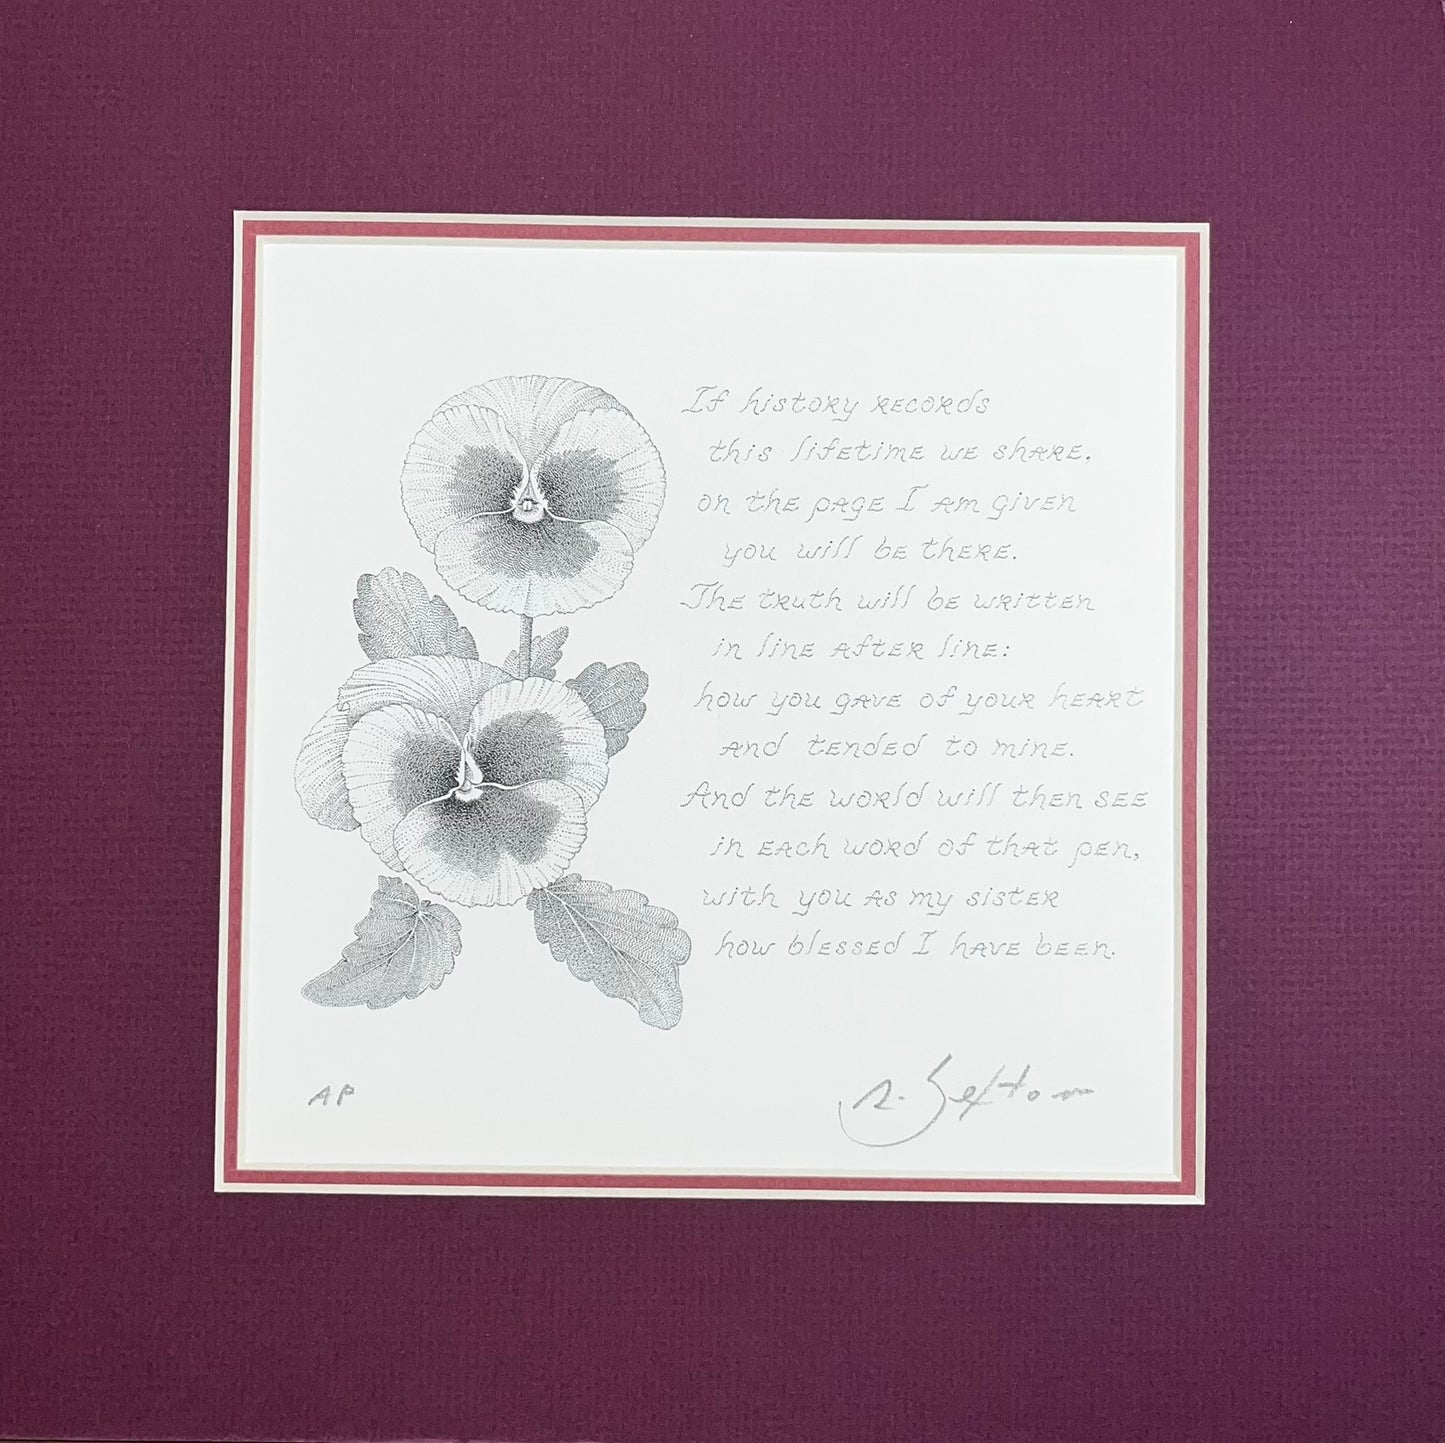 If history records
this lifetime we share,
on the page I am given
you will be there.
The truth will be written
in line after line:
how you gave of your heart
and tended to mine.
And the world will then see
in each word of that pen,
with you as my sister
how blessed I have been.
AP